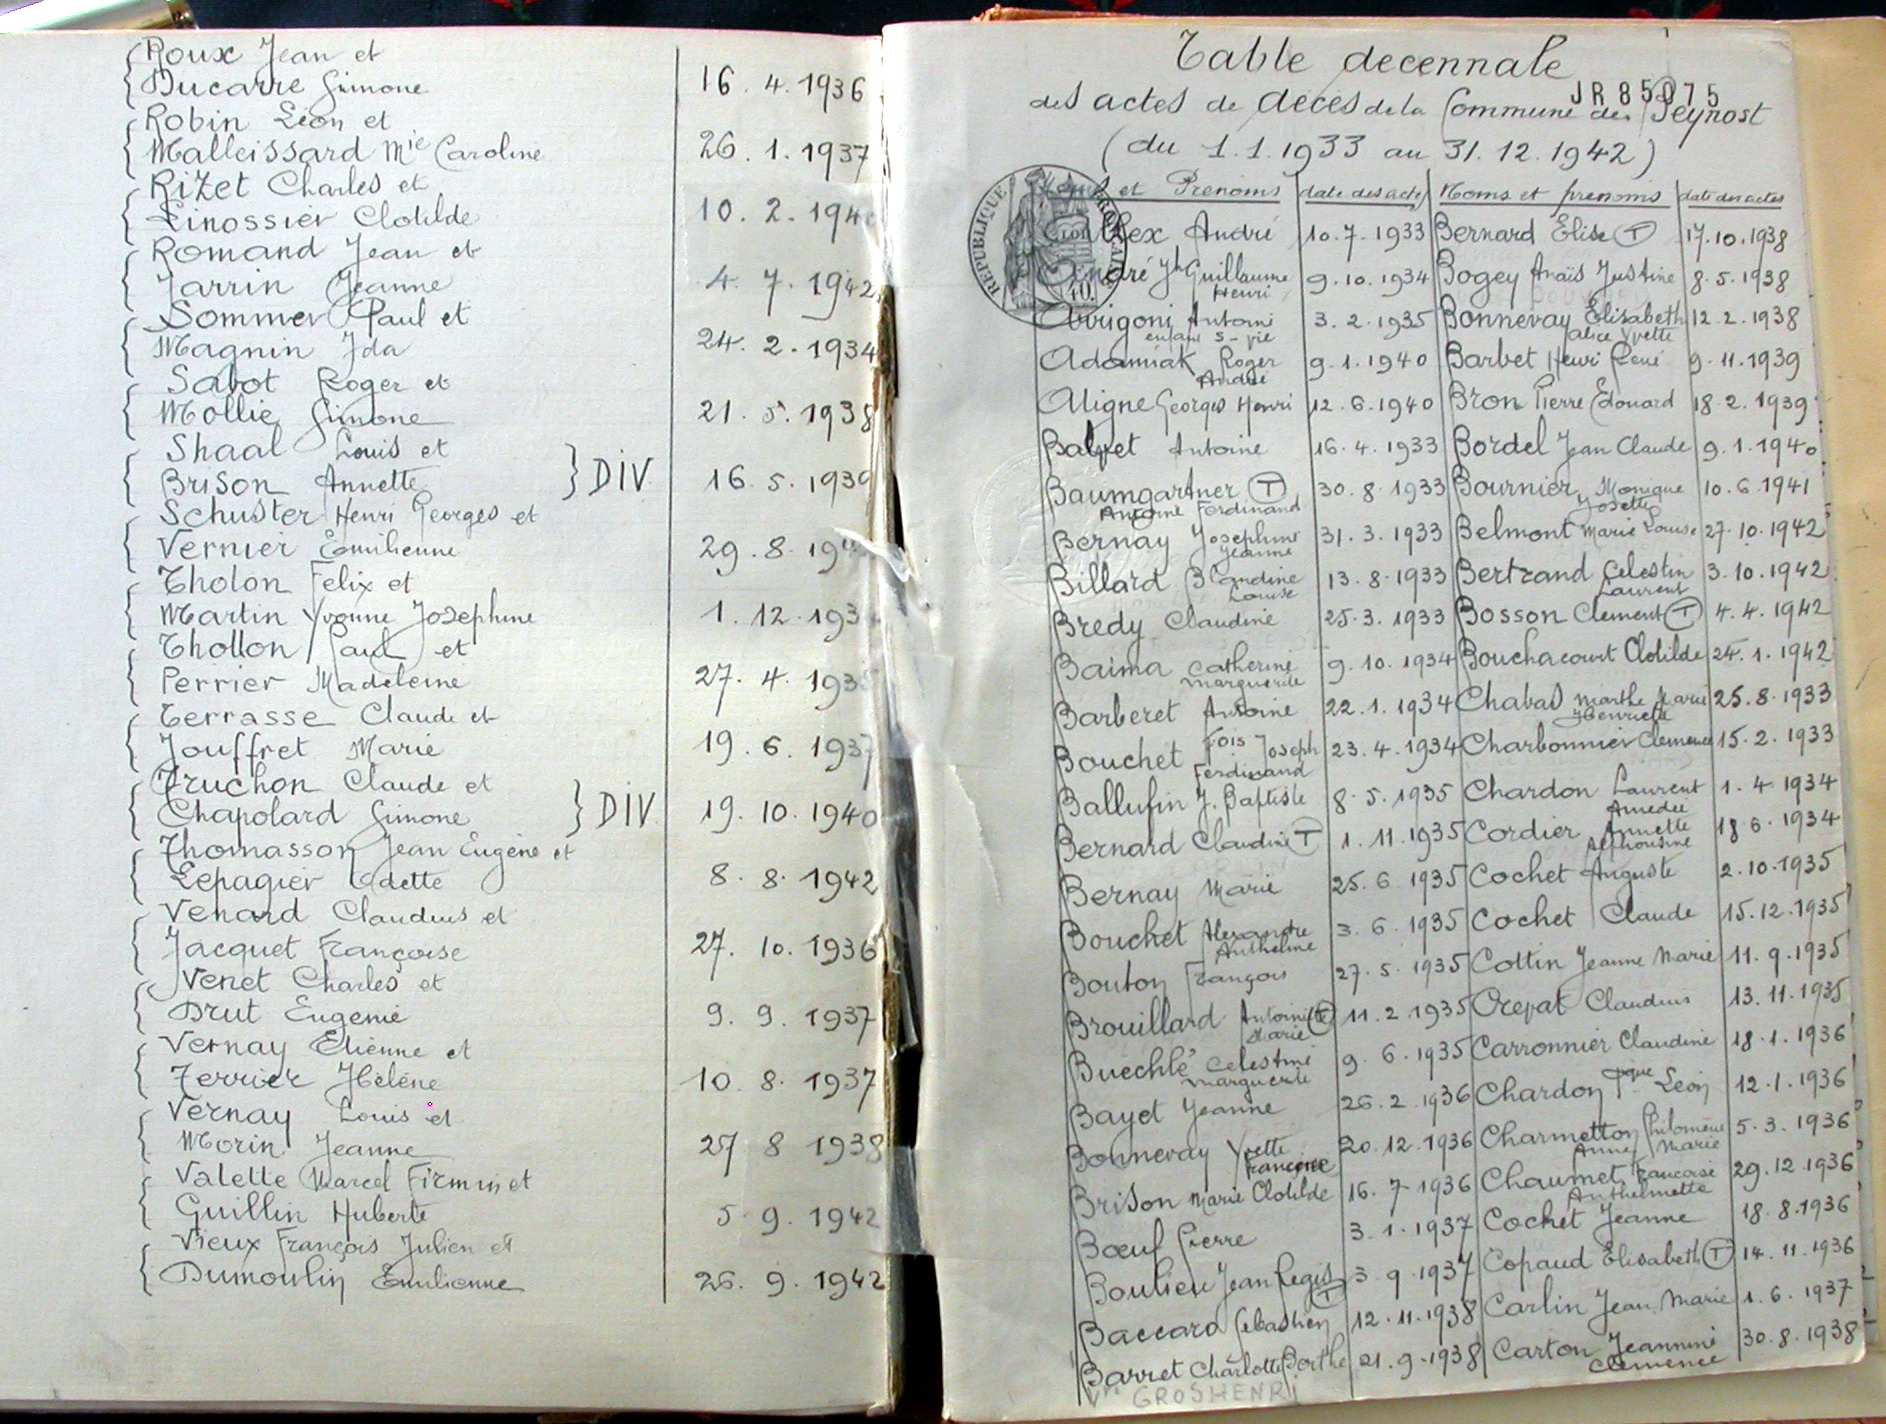 Roux Jean et
Ducarre Simone 16. 4. 1936
Robin Léon et
Malleissard Mie Caroline 26. 1. 1937
Rizet Charles et
Linossier Clotilde 10. 2.
Romand Jean et
Jarrin Jeanne 4. 7. 1942
Sommer Paul et
Magnin Ida 24. 2. 1934
Sabot Roger et
Mollie Simone 21. 5. 1938
Shaal Louis et
Brison Annette } DIV 16. 5. 1939
Schuster Henri Georges et
Vernier Emilienne 29. 8.
Tholon Felix et
Martin Yvonne Josephine 1. 12.
Thollon Paul et
Perrier Madeleine 27. 4. 1935
Terrasse Claude et
Jouffret Marie 19. 6. 1937
Truchon Claude et
Chapolard Simone } DIV 19. 10. 1940
Thomasson Jean Eugène et
Lepagier Odette 8. 8. 1942
Venard Claudius et
Jacquet Françoise 27. 10. 1936
Venet Charles et
Drut Eugenie 9. 9. 1937
Vernay Etienne et
Ferrier Hélène 10. 8. 1937
Vernay Louis et
Morin Jeanne 27 8 1938
Valette Marcel Firmin et
Guillin Huberte 5. 9. 1942
Vieux François Julien et
Dumoulin Emilienne 26. 9. 1942
Table decennale
JR 85075
des actes de décès de la Commune de Beynost
(du 1.1.1933 au 31.12.1942)
et Prenoms date des actes Noms et prenoms date des actes
RÉPUBLIQUE
André 10.7.1933 Bernard Elise (T) 17.10.1938
André Jh Guillaume Henri 9.10.1934 Bogey Anaïs Justine 8.5.1938
Arrigoni Antoni enfant s-vie 3.2.1935 Bonnevay Elisabeth Alice Yvette 12.2.1938
Adamiak Roger André 9.1.1940 Barbet Henri René 9.11.1939
Aligne Georges Henri 12.6.1940 Bron Pierre Edouard 18.2.1939
Balvet Antoine 16.4.1933 Bordel Jean Claude 9.1.1940
Baumgartner (T) Antoine Ferdinand 30.8.1933 Bournier Monique Josette 10.6.1941
Bernay Josephine Jeanne 31.3.1933 Belmont Marie Louise 27.10.1942
Billard Blandine Louise 13.8.1933 Bertrand Celestin Laurent 3.10.1942
Bredy Claudine 25.3.1933 Bosson Clement (T) 4.4.1942
Baima Catherine Marguerite 9.10.1934 Bouchacourt Clotilde 24.1.1942
Barberet Antoine 22.1.1934 Chabas Marthe Marie Henriette 25.8.1933
Bouchet Fois Joseph Ferdinand 23.4.1934 Charbonnier Clemence 15.2.1933
Ballufin J. Baptiste 8.5.1935 Chardon Laurent Amedée 1.4.1934
Bernard Claudine (T) 1.11.1935 Cordier Annette Alphonsine 18.6.1934
Bernay Marie 25.6.1935 Cochet Auguste 2.10.1935
Bouchet Alexandre Anthelme 3.6.1935 Cochet Claude 15.12.1935
Bouton François 27.5.1935 Cottin Jeanne Marie 11.9.1935
Brouillard Antoinette (T) Marie 11.2.1935 Crepat Claudius 13.11.1935
Buechlé Celestine Marguerite 9.6.1935 Carronnier Claudine 18.1.1936
Bayet Jeanne 26.2.1936 Chardon Pque Léon 12.1.1936
Bonnevay Yvette Françoise 20.12.1936 Charmetton Philomène Anne Marie 5.3.1936
Brison Marie Clotilde 16.7.1936 Chaumet Françoise Anthelmette 29.12.1936
Bœuf Pierre 3.1.1937 Cochet Jeanne 18.8.1936
Boulieu Jean Regis (T) 3.9.1937 Copaud Elisabeth (T) 14.11.1936
Baccard Sebastien 12.11.1938 Carlin Jean Marie 1.6.1937
Barret Charlotte Berthe 21.9.1938 Carton Jeannine Clemence 30.8.1938
Vve GROSHENRI